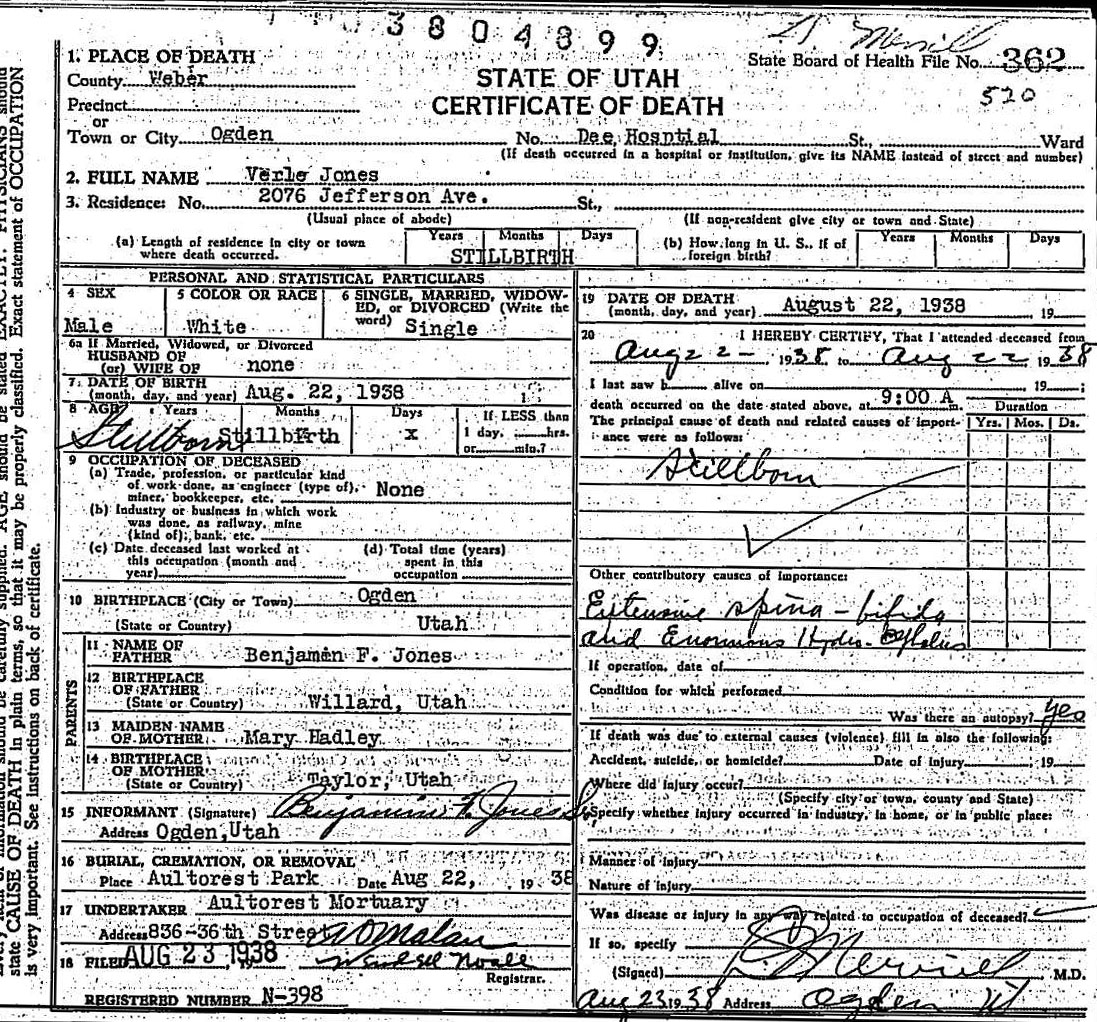 3804899
Merrill
State Board of Health File No. 362
520
1. PLACE OF DEATH
County Weber
STATE OF UTAH
CERTIFICATE OF DEATH
Precinct
or
Town or City Ogden No. Dee Hosptial St., Ward
(If death occurred in a hospital or institution, give its NAME instead of street and number)
2. FULL NAME Verle Jones
3. Residence: No. 2076 Jefferson Ave. St.,
(Usual place of abode) (If non-resident give city or town and State)
(a) Length of residence in city or town where death occurred. Years Months Days
STILLBIRTH
(b) How long in U. S., if of foreign birth? Years Months Days
PERSONAL AND STATISTICAL PARTICULARS
4 SEX
Male
5 COLOR OR RACE
White
6 SINGLE, MARRIED, WIDOW-
ED, or DIVORCED (Write the
word) Single
6a If Married, Widowed, or Divorced
HUSBAND OF
(or) WIFE OF none
7 DATE OF BIRTH
(month, day, and year) Aug. 22, 1938
8 AGE Years Months Days If LESS than
1 day, hrs.
or min.?
Stillborn Stillbirth x
9 OCCUPATION OF DECEASED
(a) Trade, profession, or particular kind
of work done, as engineer (type of),
miner, bookkeeper, etc. None
(b) Industry or business in which work
was done, as railway, mine
(kind of), bank, etc.
(c) Date deceased last worked at
this occupation (month and
year)
(d) Total time (years)
spent in this
occupation
10 BIRTHPLACE (City or Town) Ogden
(State or Country) Utah
PARENTS
11 NAME OF
FATHER Benjamen F. Jones
12 BIRTHPLACE
OF FATHER
(State or Country) Willard, Utah
13 MAIDEN NAME
OF MOTHER Mary Hadley
14 BIRTHPLACE
OF MOTHER
(State or Country) Taylor, Utah
15 INFORMANT (Signature) Benjamin F. Jones Sr.
Address Ogden, Utah
16 BURIAL, CREMATION, OR REMOVAL
Place Aultorest Park Date Aug 22, 1938
17 UNDERTAKER Aultorest Mortuary
Address 836-36th Street Malan
18 FILED AUG 23 1938, 19 Wendell Noall
Registrar.
REGISTERED NUMBER N-398
19 DATE OF DEATH
(month, day, and year) August 22, 1938 19
20 I HEREBY CERTIFY, That I attended deceased from
Aug 22 - 1938 to Aug 22 1938
I last saw h alive on , 19 ;
death occurred on the date stated above, at 9:00 A m.
The principal cause of death and related causes of import-
ance were as follows:
Duration
Yrs. Mos. Ds.
Stillborn
Other contributory causes of importance:
Extensive spina-bifida
and Enormous Hydro-cephalus
If operation, date of
Condition for which performed
Was there an autopsy? yes
If death was due to external causes (violence) fill in also the following:
Accident, suicide, or homicide? Date of injury , 19
Where did injury occur?
(Specify city or town, county and State)
Specify whether injury occurred in industry, in home, or in public place:
Manner of injury
Nature of injury
Was disease or injury in any way related to occupation of deceased?
If so, specify
(Signed) Merrill M.D.
Aug 23 1938 Address Ogden Ut
state CAUSE OF DEATH in plain terms, so that it may be properly classified. Exact statement of OCCUPATION
is very important. See instructions on back of certificate.